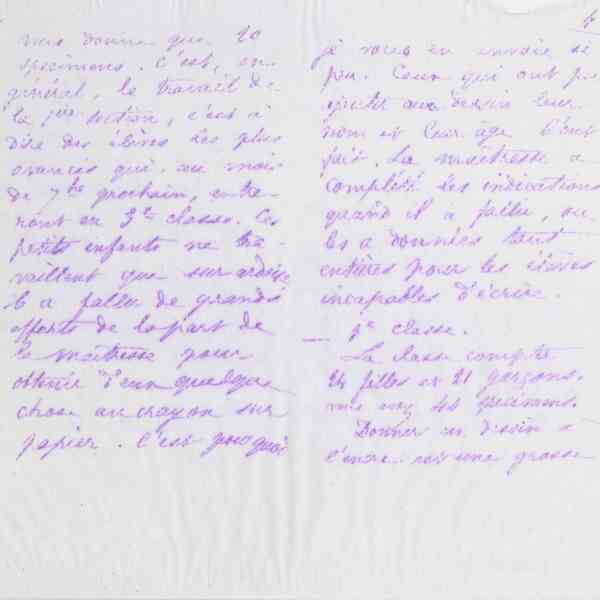 vous donne que 20
spécimens. C'est, en
général, le travail de
la 1ère section, c'est à
dire des élèves les plus
avancés qui, au mois
de 7bre prochain, entre-
ront en 3e classe. Ces
petits enfants ne tra-
vaillent que sur ardoise
il a fallu de grands
efforts de la part de
la maîtresse pour
obtenir d'eux quelque
chose au crayon sur
papier. C'est pourquoi
je vous en envoie si
peu. Ceux qui ont pu
ajouter au dessin leur
nom et leur âge l'ont
fait. La maîtresse a
complété les indications
quand il a fallu, ou
les a données tout
entières pour les élèves
incapables d'écrire.
— 3e classe.
La classe compte
24 filles et 21 garçons.
45 spécimens.
Donner un dessin à
l'encre sur une grosse